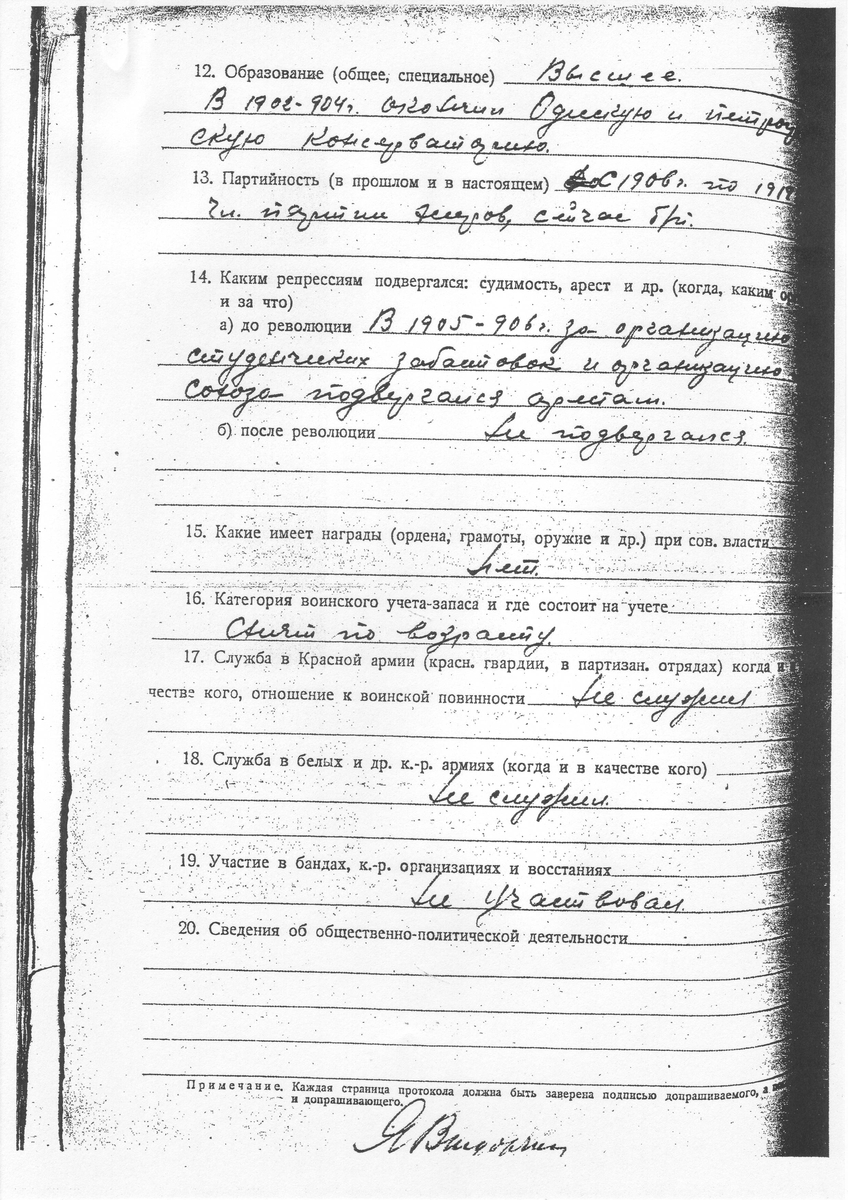 12. Образование (общее, специальное) Высшее.
В 1902-904г. окончил Одескую и петрогр
скую консерваторию.
13. Партийность (в прошлом и в настоящем) С 1906г. по 191
чл. партии эсеров, сейчас б/п.
14. Каким репрессиям подвергался: судимость, арест и др. (когда, каким
и за что)
а) до революции В 1905-906г. за организацию
студенческих забастовок и организацию
союза подвергался арестам.
б) после революции Не подвергался.
15. Какие имеет награды (ордена, грамоты, оружие и др.) при сов. власти
Нет.
16. Категория воинского учета-запаса и где состоит на учете
Снят по возрасту.
17. Служба в Красной армии (красн. гвардии, в партизан. отрядах) когда и
честве кого, отношение к воинской повинности Не служил
18. Служба в белых и др. к.-р. армиях (когда и в качестве кого)
Не служил.
19. Участие в бандах, к.-р. организациях и восстаниях
Не участвовал.
20. Сведения об общественно-политической деятельности
Примечание. Каждая страница протокола должна быть заверена подписью допрашиваемого, а
и допрашивающего.